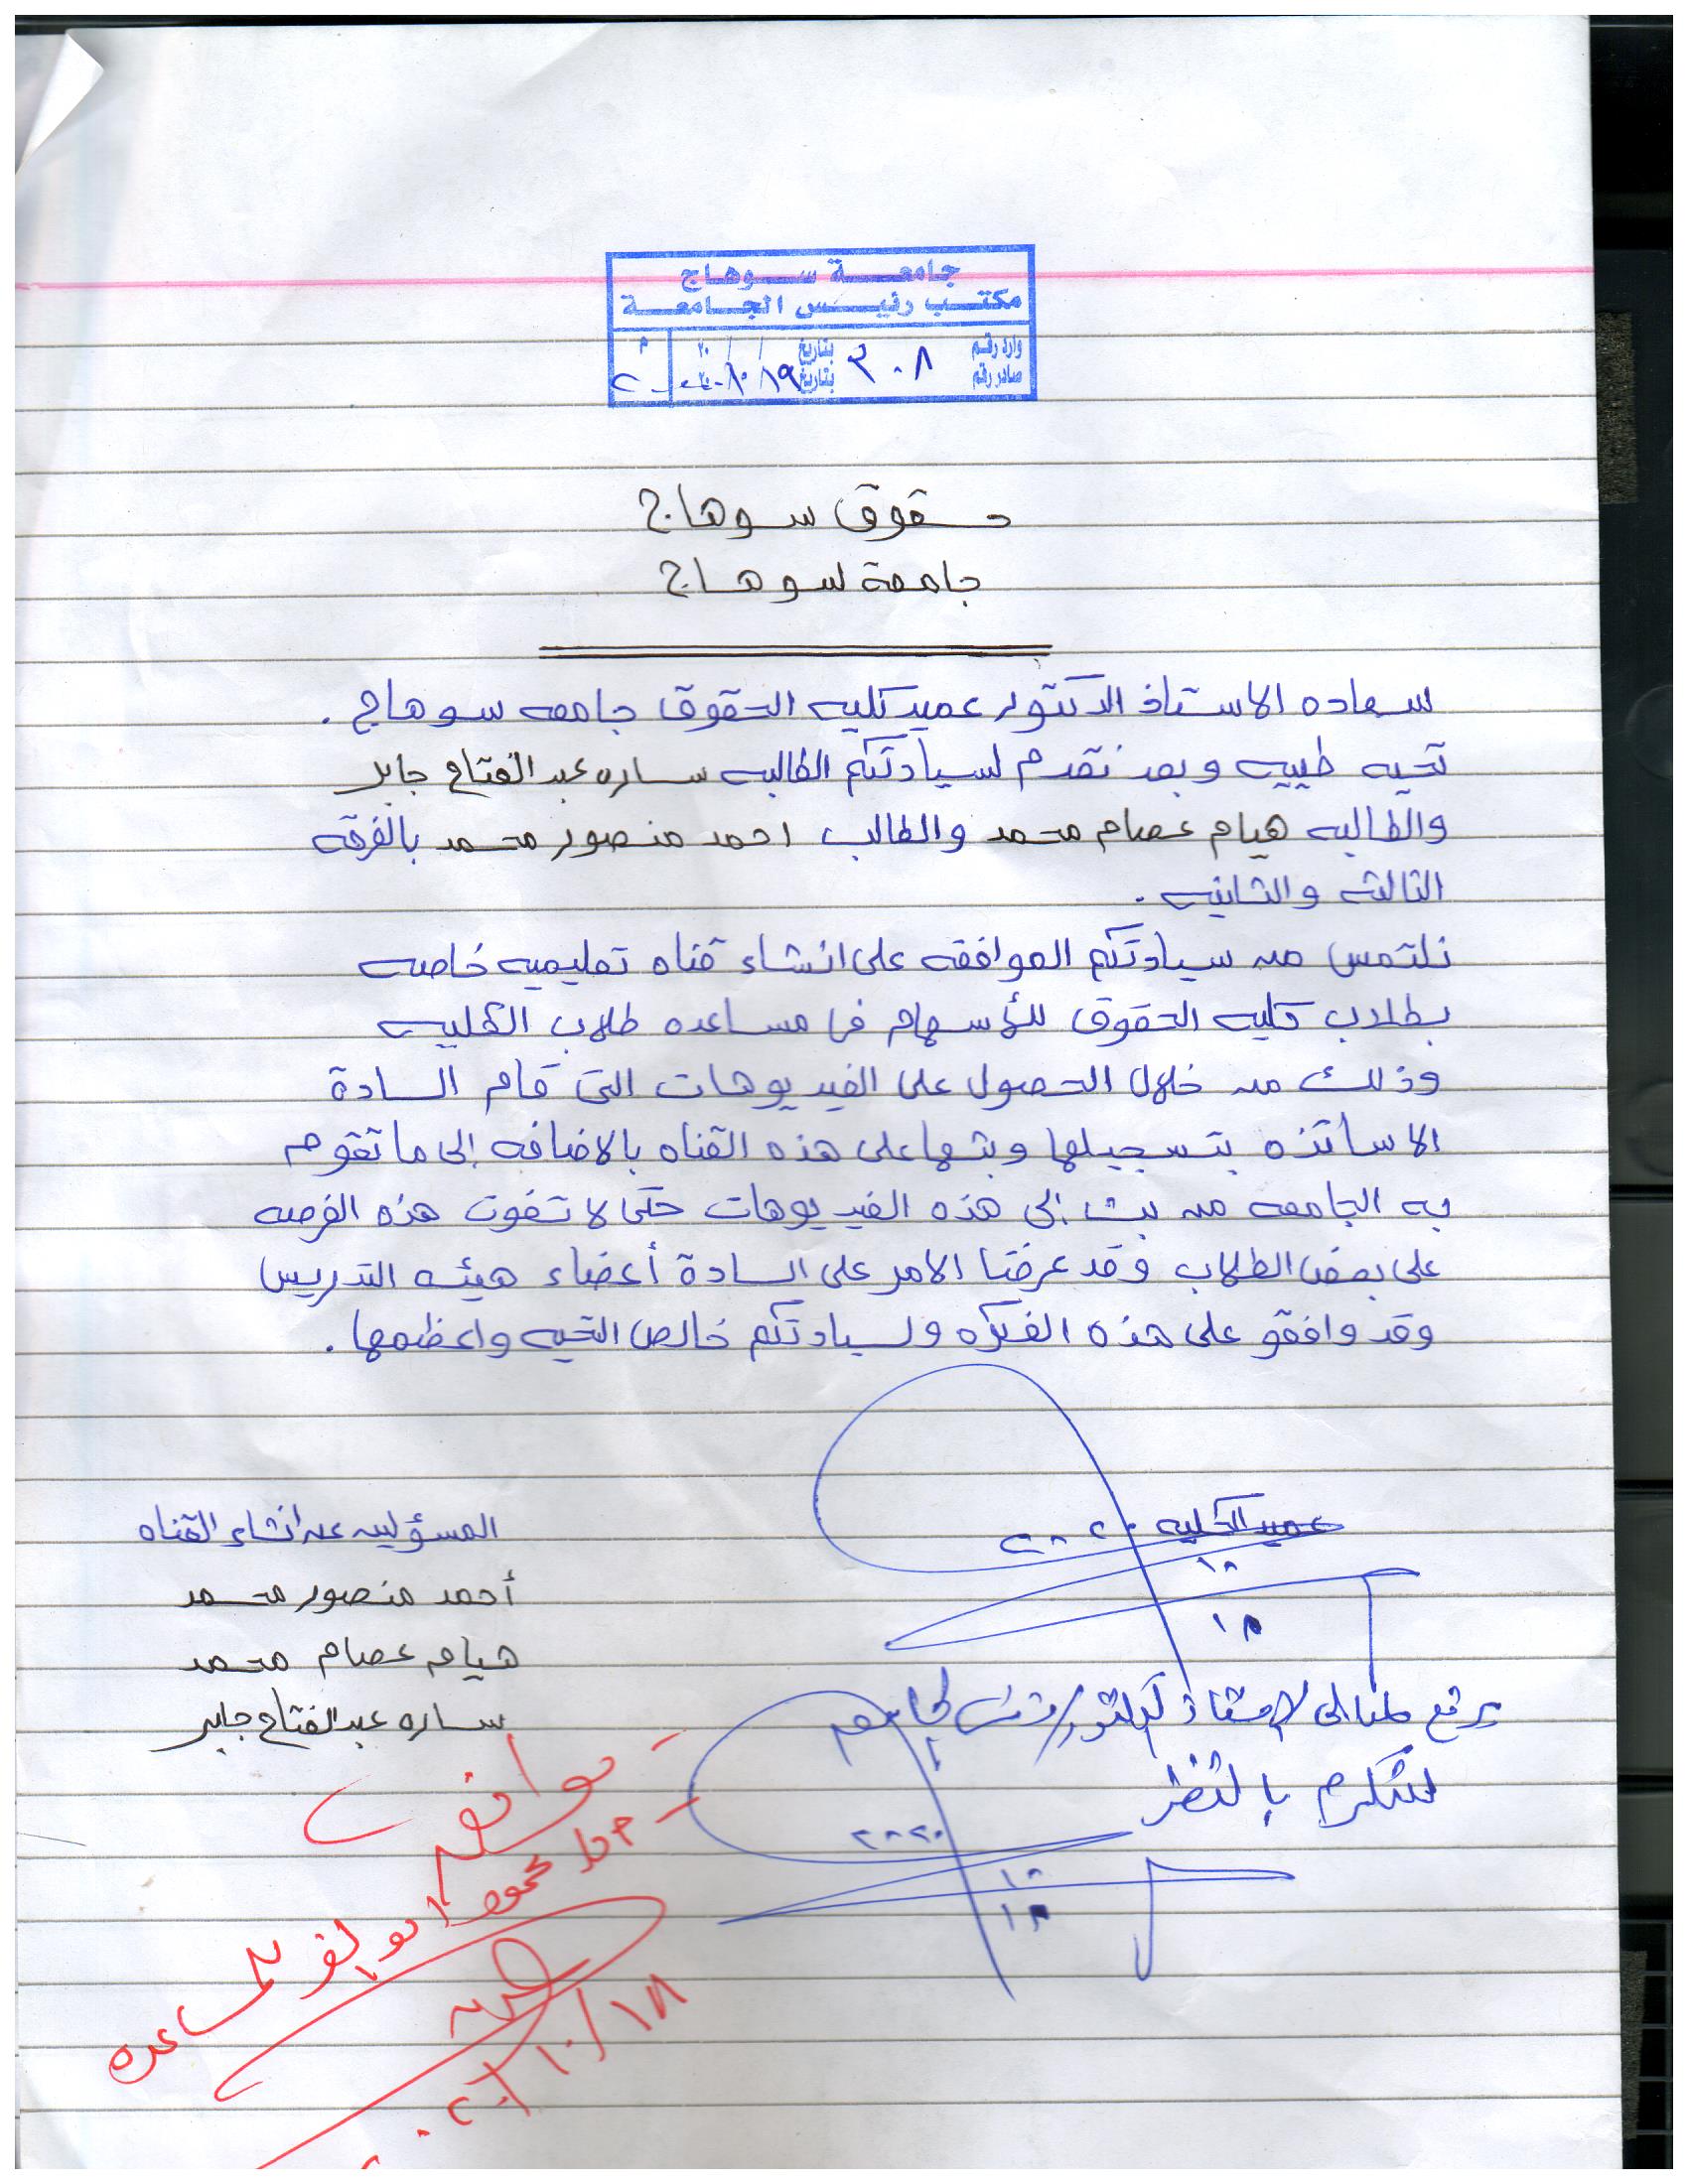 جامعة سوهاج
مكتب رئيس الجامعة
وارد رقم ٣٠٨ بتاريخ / / ٢٠ م
صادر رقم بتاريخ ١٩/١٠/٢٠٢٠
حقوق سوهاج
جامعة سوهاج
سعاده الاستاذ الدكتور عميد كليه الحقوق جامعه سوهاج .
تحيه طيبه وبعد نقدم لسيادتكم الطالبه ساره عبد الفتاح جابر
والطالبه هيام عصام محمد والطالب احمد منصور محمد بالفرقه
الثالثه والثانيه .
نلتمس من سيادتكم الموافقه على انشاء قناه تعليميه خاصه
بطلاب كليه الحقوق للأسهام فى مساعده طلاب الكليه
وذلك من خلال الحصول على الفيديوهات التى قام السادة
الاساتذه بتسجيلها وبثها على هذه القناه بالاضافه إلى ما تقوم
به الجامعه من بث إلى هذه الفيديوهات حتى لا تفوت هذه الفرصه
على بعض الطلاب وقد عرضنا الامر على السادة أعضاء هيئه التدريس
وقد وافقو على هذه الفكره ولسيادتكم خالص التحيه واعظمها .
عميد الكليه ٢٠٢٠
١٠
١٨
المسؤلين عن انشاء القناه
أحمد منصور محمد
هيام عصام محمد
ساره عبد الفتاح جابر
يرفع طلبا الى الاستاذ الدكتور رئيس الجامعه
للتكرم بالنظر
٢٠٢٠
١٠
١٨
- نوافق
- محمود ابو الفر
١٨/١٠/٢٠٢٠